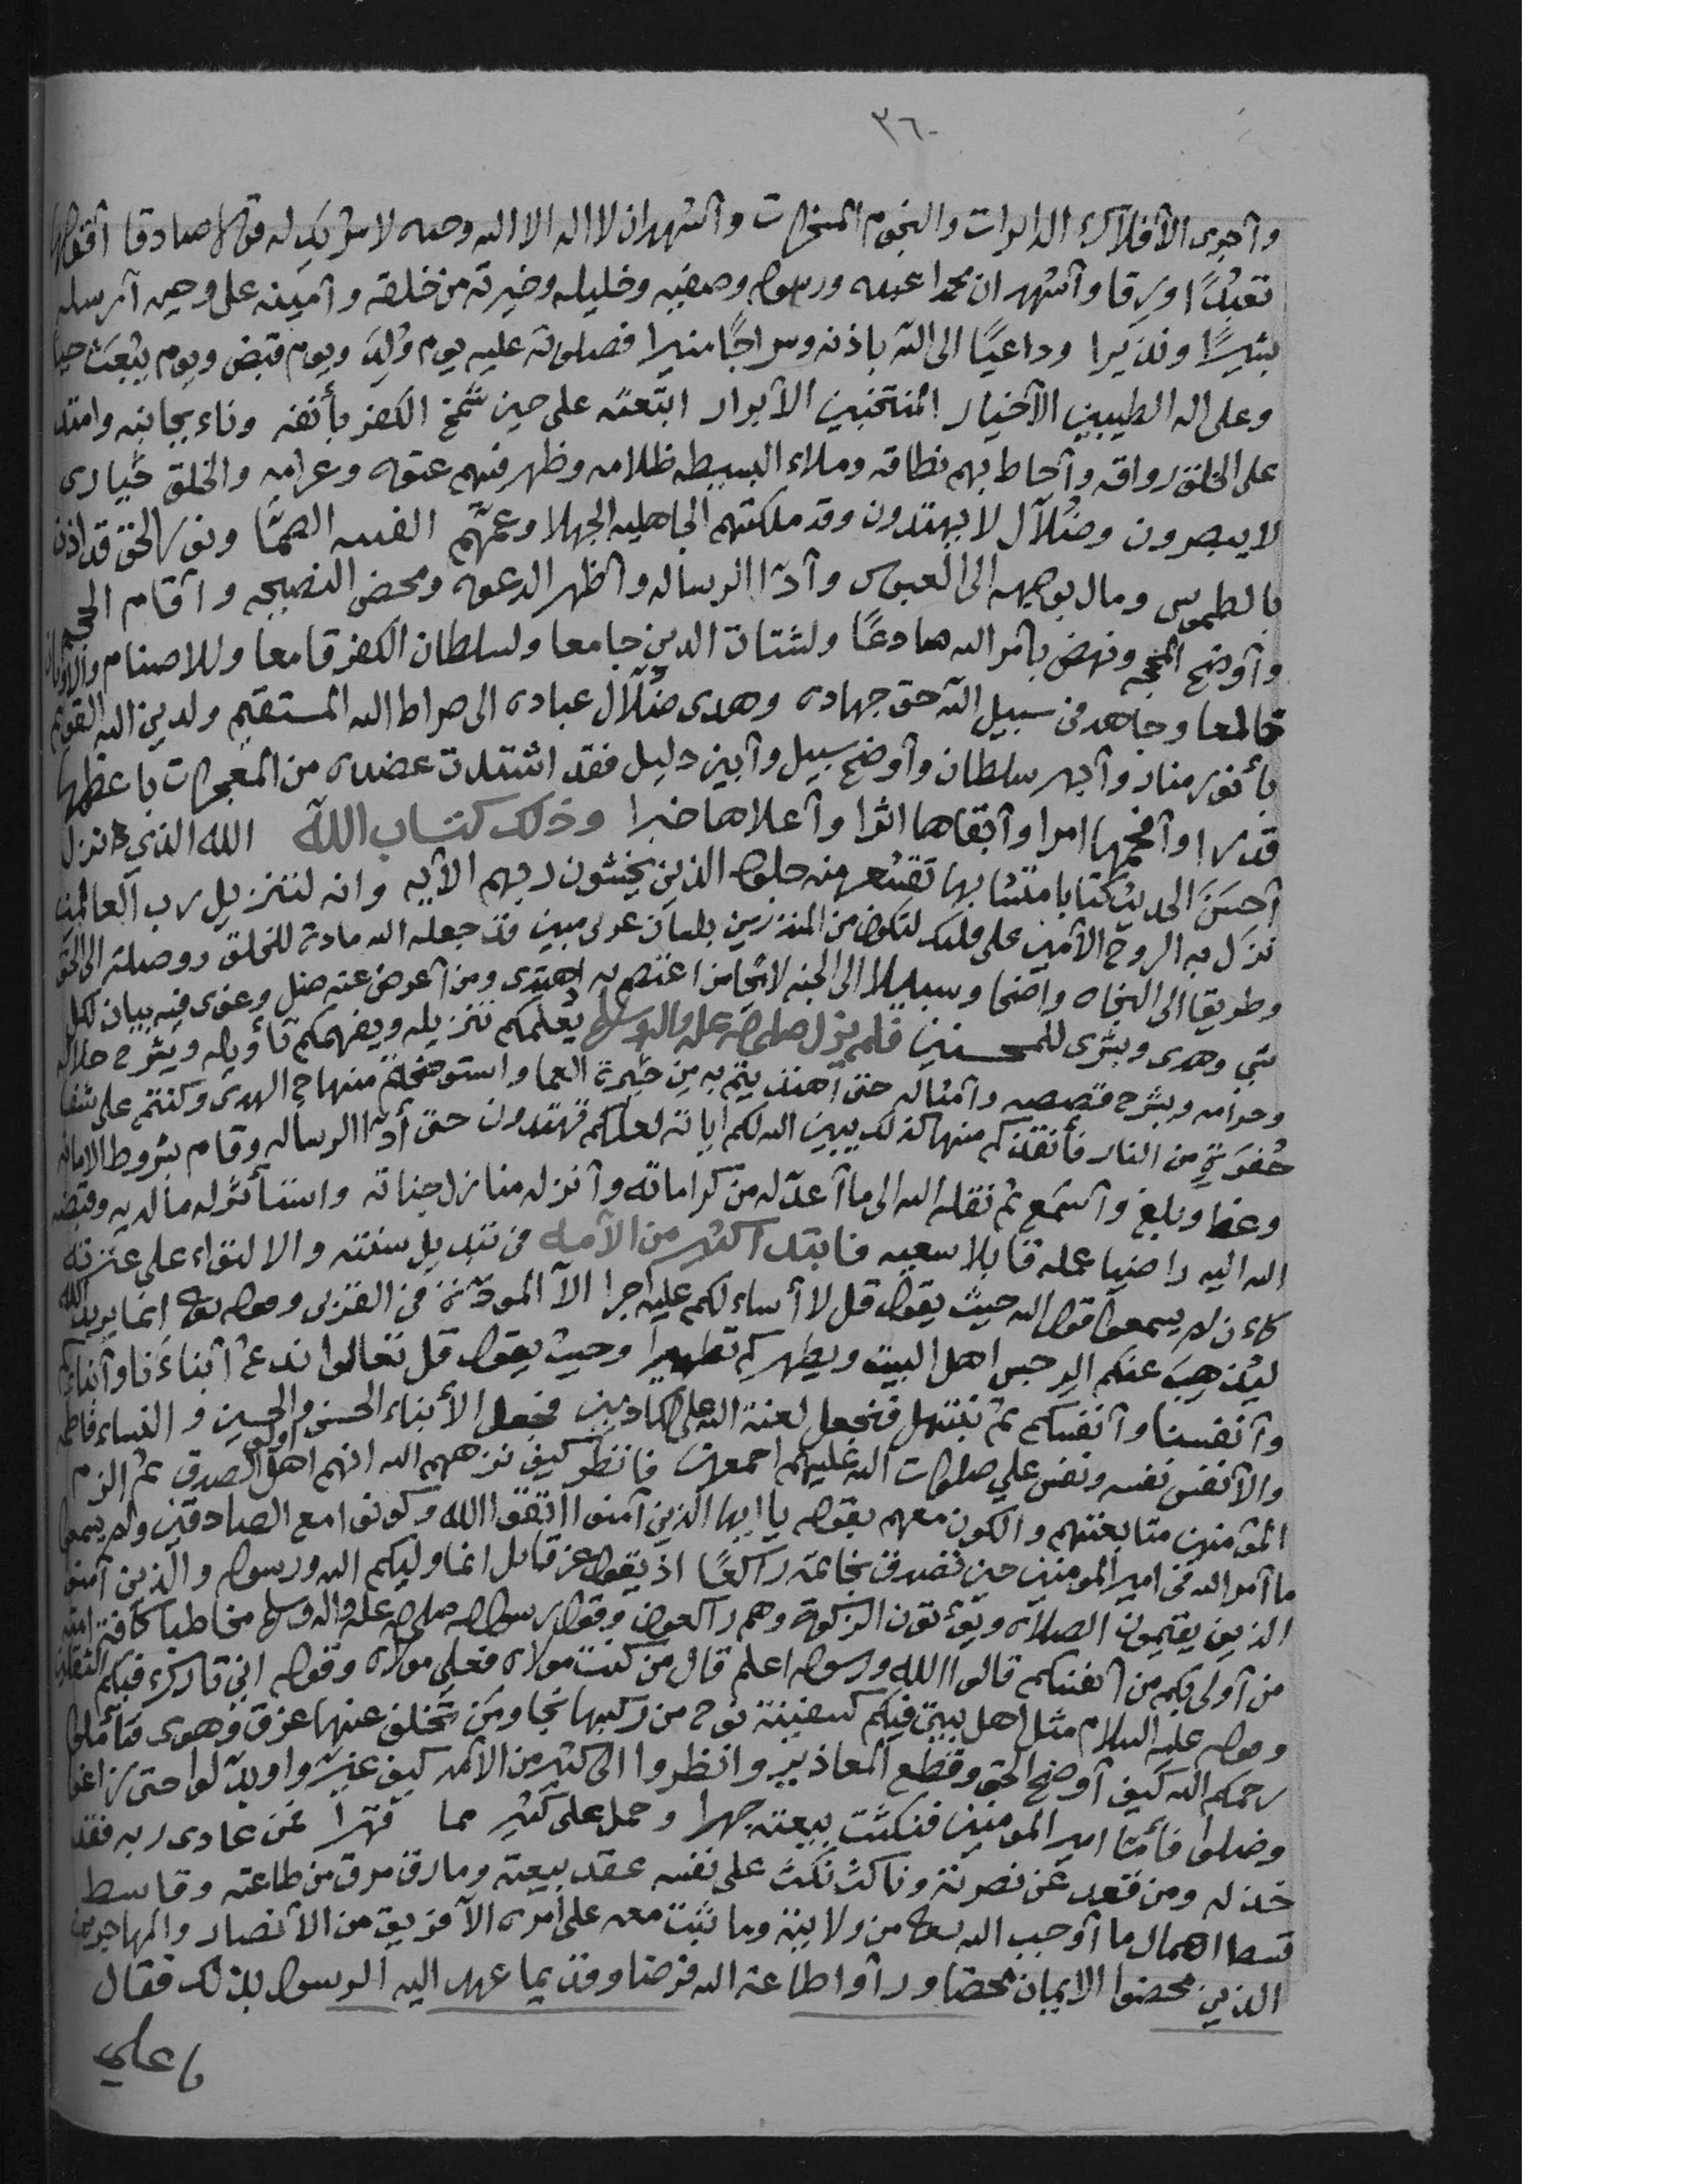 ٣٦٠
وأجرى الأفلاك الدايرات والنجوم المسخرات وأشهد ان لا اله الا الله وحده لا شريك له قولا صادقا أقولها
تعبدًا ورقا وأشهد ان محمدا عبده ورسوله وصفيه وخليله وخيرته من خلقه وأمينه على وحيه أرسله
بشيرًا ونذيرا وداعيًا الى الله باذنه وسراجًا منيرا فصلوته عليه يوم وُلِدَ ويوم قبض ويوم يُبْعَث حيا
وعلى اله الطيبين الأخيار المنتخبين الأبرار ابتعثه على حين شمخ الكفر بأنفه وناء بجانبه وامتد
على الخلق رواقه وأحاط بهم نطاقه وملاء البسيطه ظلامه وظهر فيهم عتوه وعرامه والخلق حُيارى
لا يبصرون وضُلآل لا يهتدون وقد ملكتهم الجاهليه الجهلا وعمّتهم الفتنه الصمّا ونور الحق قد اذن
بالطموس ومال بوجهه الى العبوس وأدّا الرساله وأظهر الدعوه ومحض النصيحه وأقام الحجه
وأوضح المحجه ونهض بأمر الله صادعًا ولشتات الدين جامعا ولسلطان الكفر قامعا وللاصنام والاوثان
خالعا وجاهد في سبيل الله حق جهاده وهدى ضُلّال عباده الى صراط الله المستقيم ولدين الله القويم
بأنور منار وأبهر سلطان وأوضح سبيل وأبين دليل فقد اشتدت عضده من المعجزات باعظمها
قدرا وأفخمها امرا وأبقاها اثرا وأعلاها خبرا وذلك كتاب الله الله الذي انزل
أحسَنَ الحديث كتابا متشابها تقشعر منه جلود الذين يخشون ربهم الأيه وانه لتنزيل رب العالمين
نزل به الروح الأمين على قلبك لتكون من المنذرين بلسان عربى مبين قد جعله الله مادة للخلق ووصلة الى الحق
وطريقا الى النجاه واضحا وسبيلا الى الجنه لائحًا من اعتصم به اهتدى ومن أعرض عنه ضل وغوى فيه بيان لكل
شي وهدى وبشرى للمحسنين فلم يزل صلى الله عليه واله وسلم يعلمكم تنزيله ويفهمكم تأويله ويشرح حلاله
وحرامه ويشرح قصصه وأمثاله حتى أهتديتم به من حَيرة العما واستوضحتم منهاج الهدى وكنتم على شفا
حُفرَةٍ من النار فأنقذكم منها كذلك يبين الله لكم اياته لعلكم تهتدون حتى أدّا الرساله وقام بشروط الامانه
وعظ وبلغ وأسمع ثم نقله الله الى ما أعدّ له من كراماته وأنزله منازل جناته واستأثر له ما لديه وقبضه
الله اليه راضيا عمله قابلا سعيه فابتدا كثير من الأمه في تبديل سنته والالتواء على عترته
كاءن لم يسمعوا قول الله حيث يقول قل لا أساءلكم عليه اجرا الآ المودّة في القربى وقوله تعالى انما يريد الله
ليُذهِبَ عنكم الرجس اهل البيت ويطهركم تطهيرا وحيث يقول قل تعالوا ندعُ أبناءَنا وأبناءكم
وأنفسنا وأنفسكم ثم نبتهل فنجعل لعنة الله على الكاذبين فجعل الأبناء الحسن والحسين والنساء فاطمه
والأنفس نفسه ونفس علي صلوات الله عليهم اجمعين فانظر كيف نزههم الله انهم اهل الصدق ثم الزم
المؤمنين متابعتهم والكون معهم بقوله يا ايها الذين آمنوا اتقوا الله وكونوا مع الصادقين ولم يسمعوا
ما أمر الله في امير المومنين حين تصدق بخاتمه راكعًا اذ يقول عز قائل انما وليكم الله ورسوله والذين آمنوا
الذين يقيمون الصلاه ويؤتون الزكوة وهم راكعون وقول رسول الله صلى الله عليه واله وسلم مخاطبا كافة امته
من أولى بكم من انفسكم قالوا الله ورسوله اعلم قال من كنت مولاه فعلي مولاه وقوله اني تارك فيكم الثقلين
وقوله عليه السلام مثل اهل بيتي فيكم كسفينة نوح من ركبها نجا ومن تخلف عنها غرق وهوى فتأملوا
رحمكم الله كيف أوضح الحق وقطع المعاذير وانظروا الى كثير من الأمه كيف غيّروا وبدّلوا حتى زاغوا
وضلوا فأمّا امير المومنين فنكثت بيعته جهرا وحمل على كثير مما قهرا فمن عادى ربه فقد
خذله ومن قعد عن نصرته وناكث نكث على نفسه عقد بيعته ومارق مرق من طاعته وقاسط
قسط اهمال ما أوجب الله تعالى من ولايته وما ثبت معه على أمره الآ فريق من الأنصار والمهاجرين
الذين محضوا الايمان محضا ورأوا طاعة الله فرضا وقد بما عهد اليه الرسول بذلك فقال
يا علي